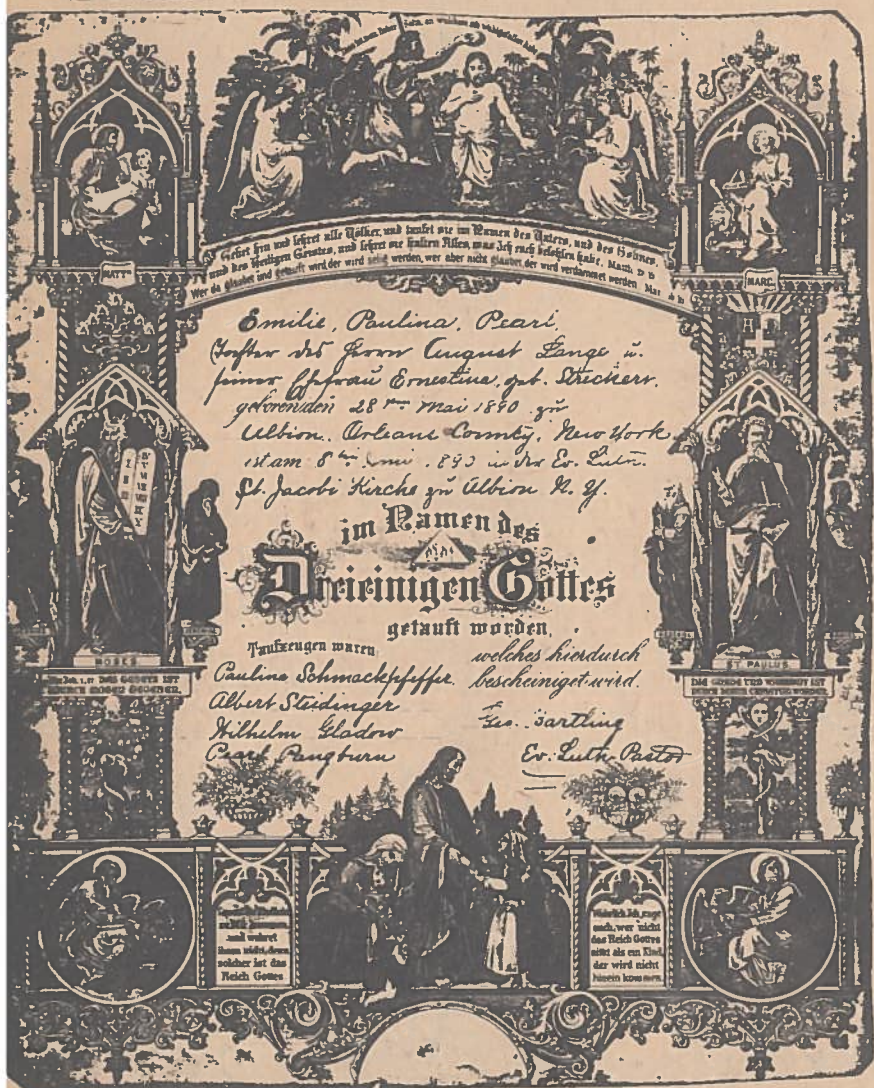 Gehet hin und lehret alle Völker, und taufet sie im Namen des Vaters, und des Sohnes,
und des Heiligen Geistes, und lehret sie halten Alles, was Ich euch befohlen habe. Matth.
Wer da glaubet und getauft wird, der wird selig werden, wer aber nicht glaubet, der wird verdammet werden. Mar.
MATTH.
MARC.
Emilie, Paulina, Pearl,
Tochter des Herrn August Lange u.
seiner Ehefrau Ernestina, geb. Strickert.
geboren den 28ten Mai 1890 zu
Albion, Orleans County, New York
ist am 8ten 1890 in der Ev. Luth.
St. Jacobi Kirche zu Albion N. Y.
im Namen des
Dreieinigen Gottes
getauft worden,
Taufzeugen waren
welches hierdurch
bescheiniget wird.
Paulina Schmackpfeffer
Albert Steidinger
Wilhelm Gladow
Pearl Pangburn
Geo. Bartling
Ev. Luth Pastor
MOSES
DAS GESETZ IST
DURCH MOSEN GEGEBEN.
ST. PAULUS
DIE GNADE UND WAHRHEIT IST
DURCH JESUM CHRISTUM WORDEN
und wehret
ihnen nicht, denn
solcher ist das
Reich Gottes
Wahrlich Ich sage
euch, wer nicht
das Reich Gottes
nimt als ein Kind,
der wird nicht
hinein kommen.